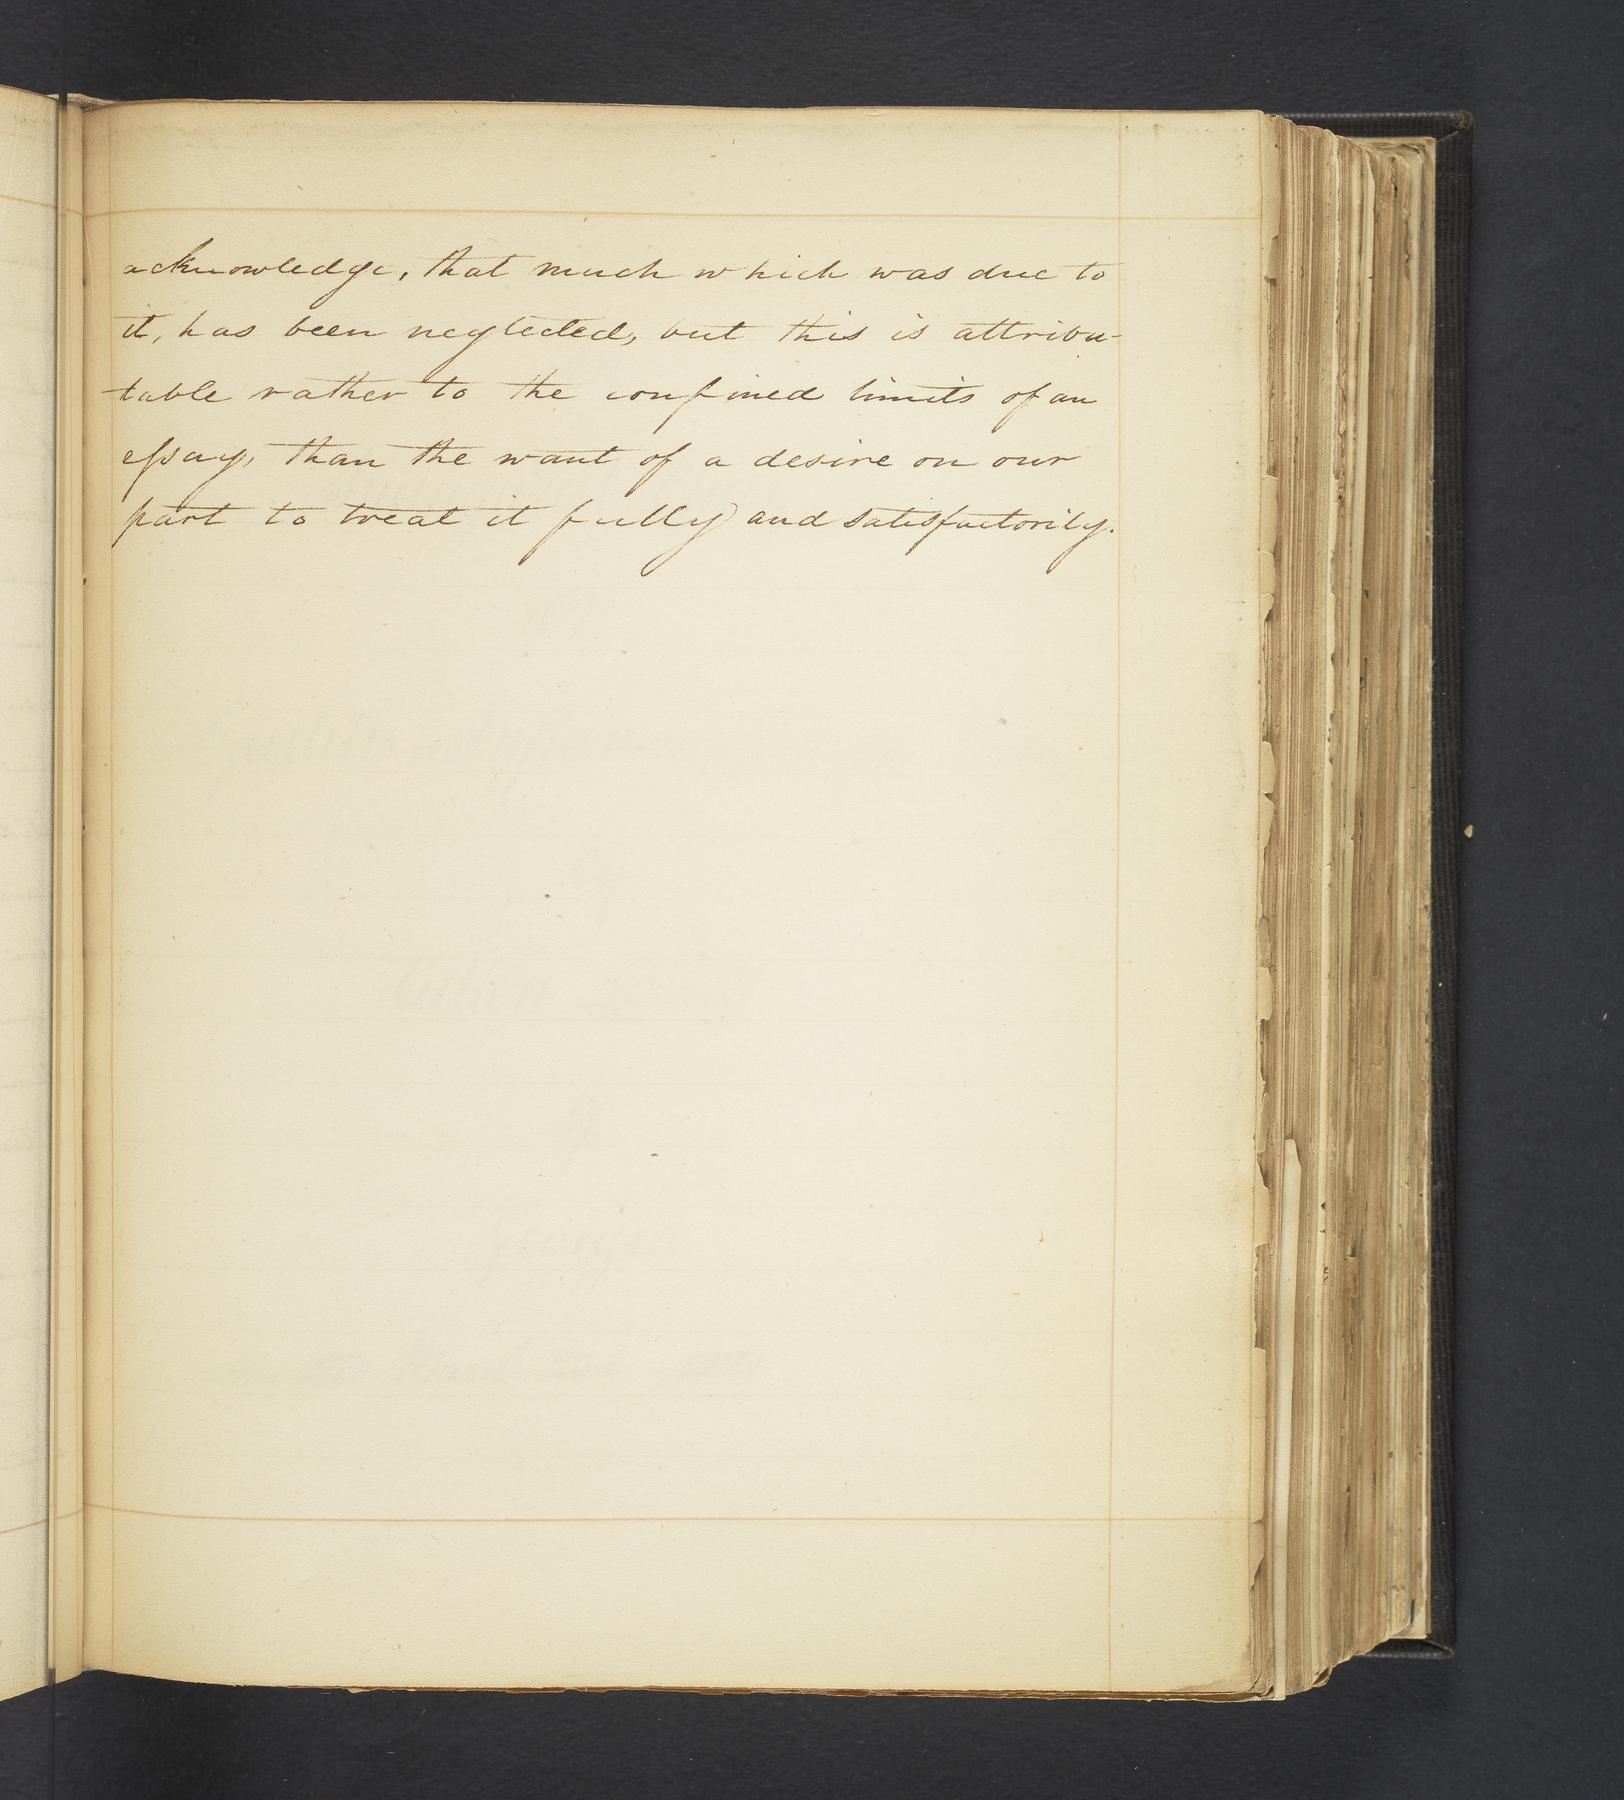 acknowledge, that much which was due to
it, has been neglected, but this is attribu-
table rather to the confined limits of an
eſsay, than the want of a desire on our
part to treat it fully and satisfactorily.